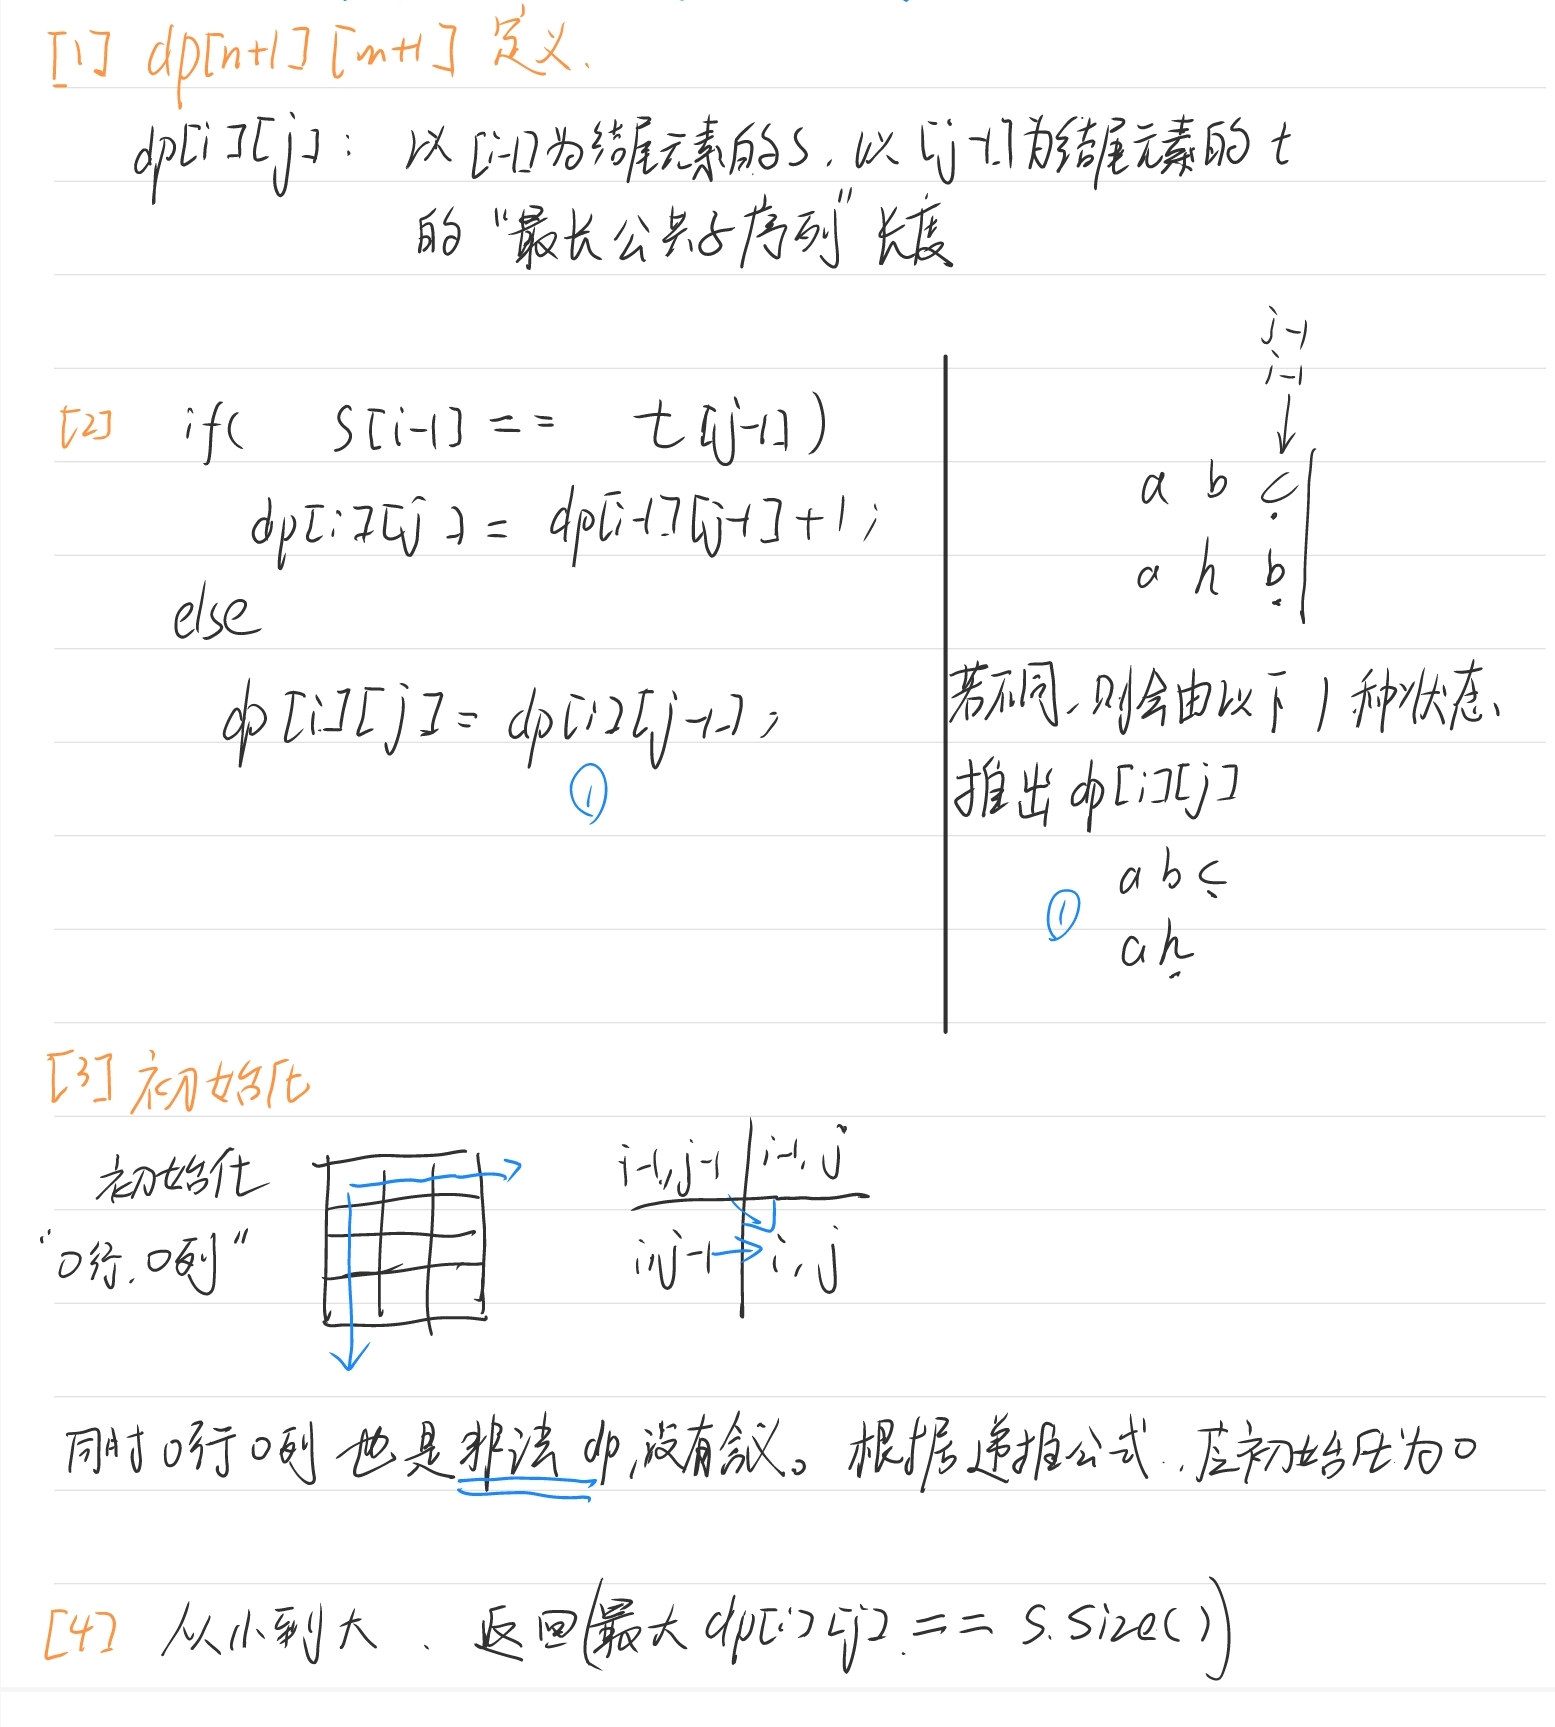 [1] dp[n+1][m+1] 定义.
dp[i][j]: 以[i-1]为结尾元素的S,以[j-1]为结尾元素的t
的“最长公共子序列”长度
[2] if( S[i-1] == t[j-1])
dp[i][j] = dp[i-1][j-1]+1;
else
dp[i][j] = dp[i][j-1];
①
j-1
i-1
a b c
a h b
若不同,则会由以下1种状态、
推出dp[i][j]
a b c
①
a h
[3] 初始化
初始化
“0行,0列”
i-1,j-1 i-1,j
i,j-1 i,j
同时0行0列也是非法dp,没有含义。根据递推公式,应初始化为0
[4] 从小到大. 返回(最大dp[i][j] == S.size())